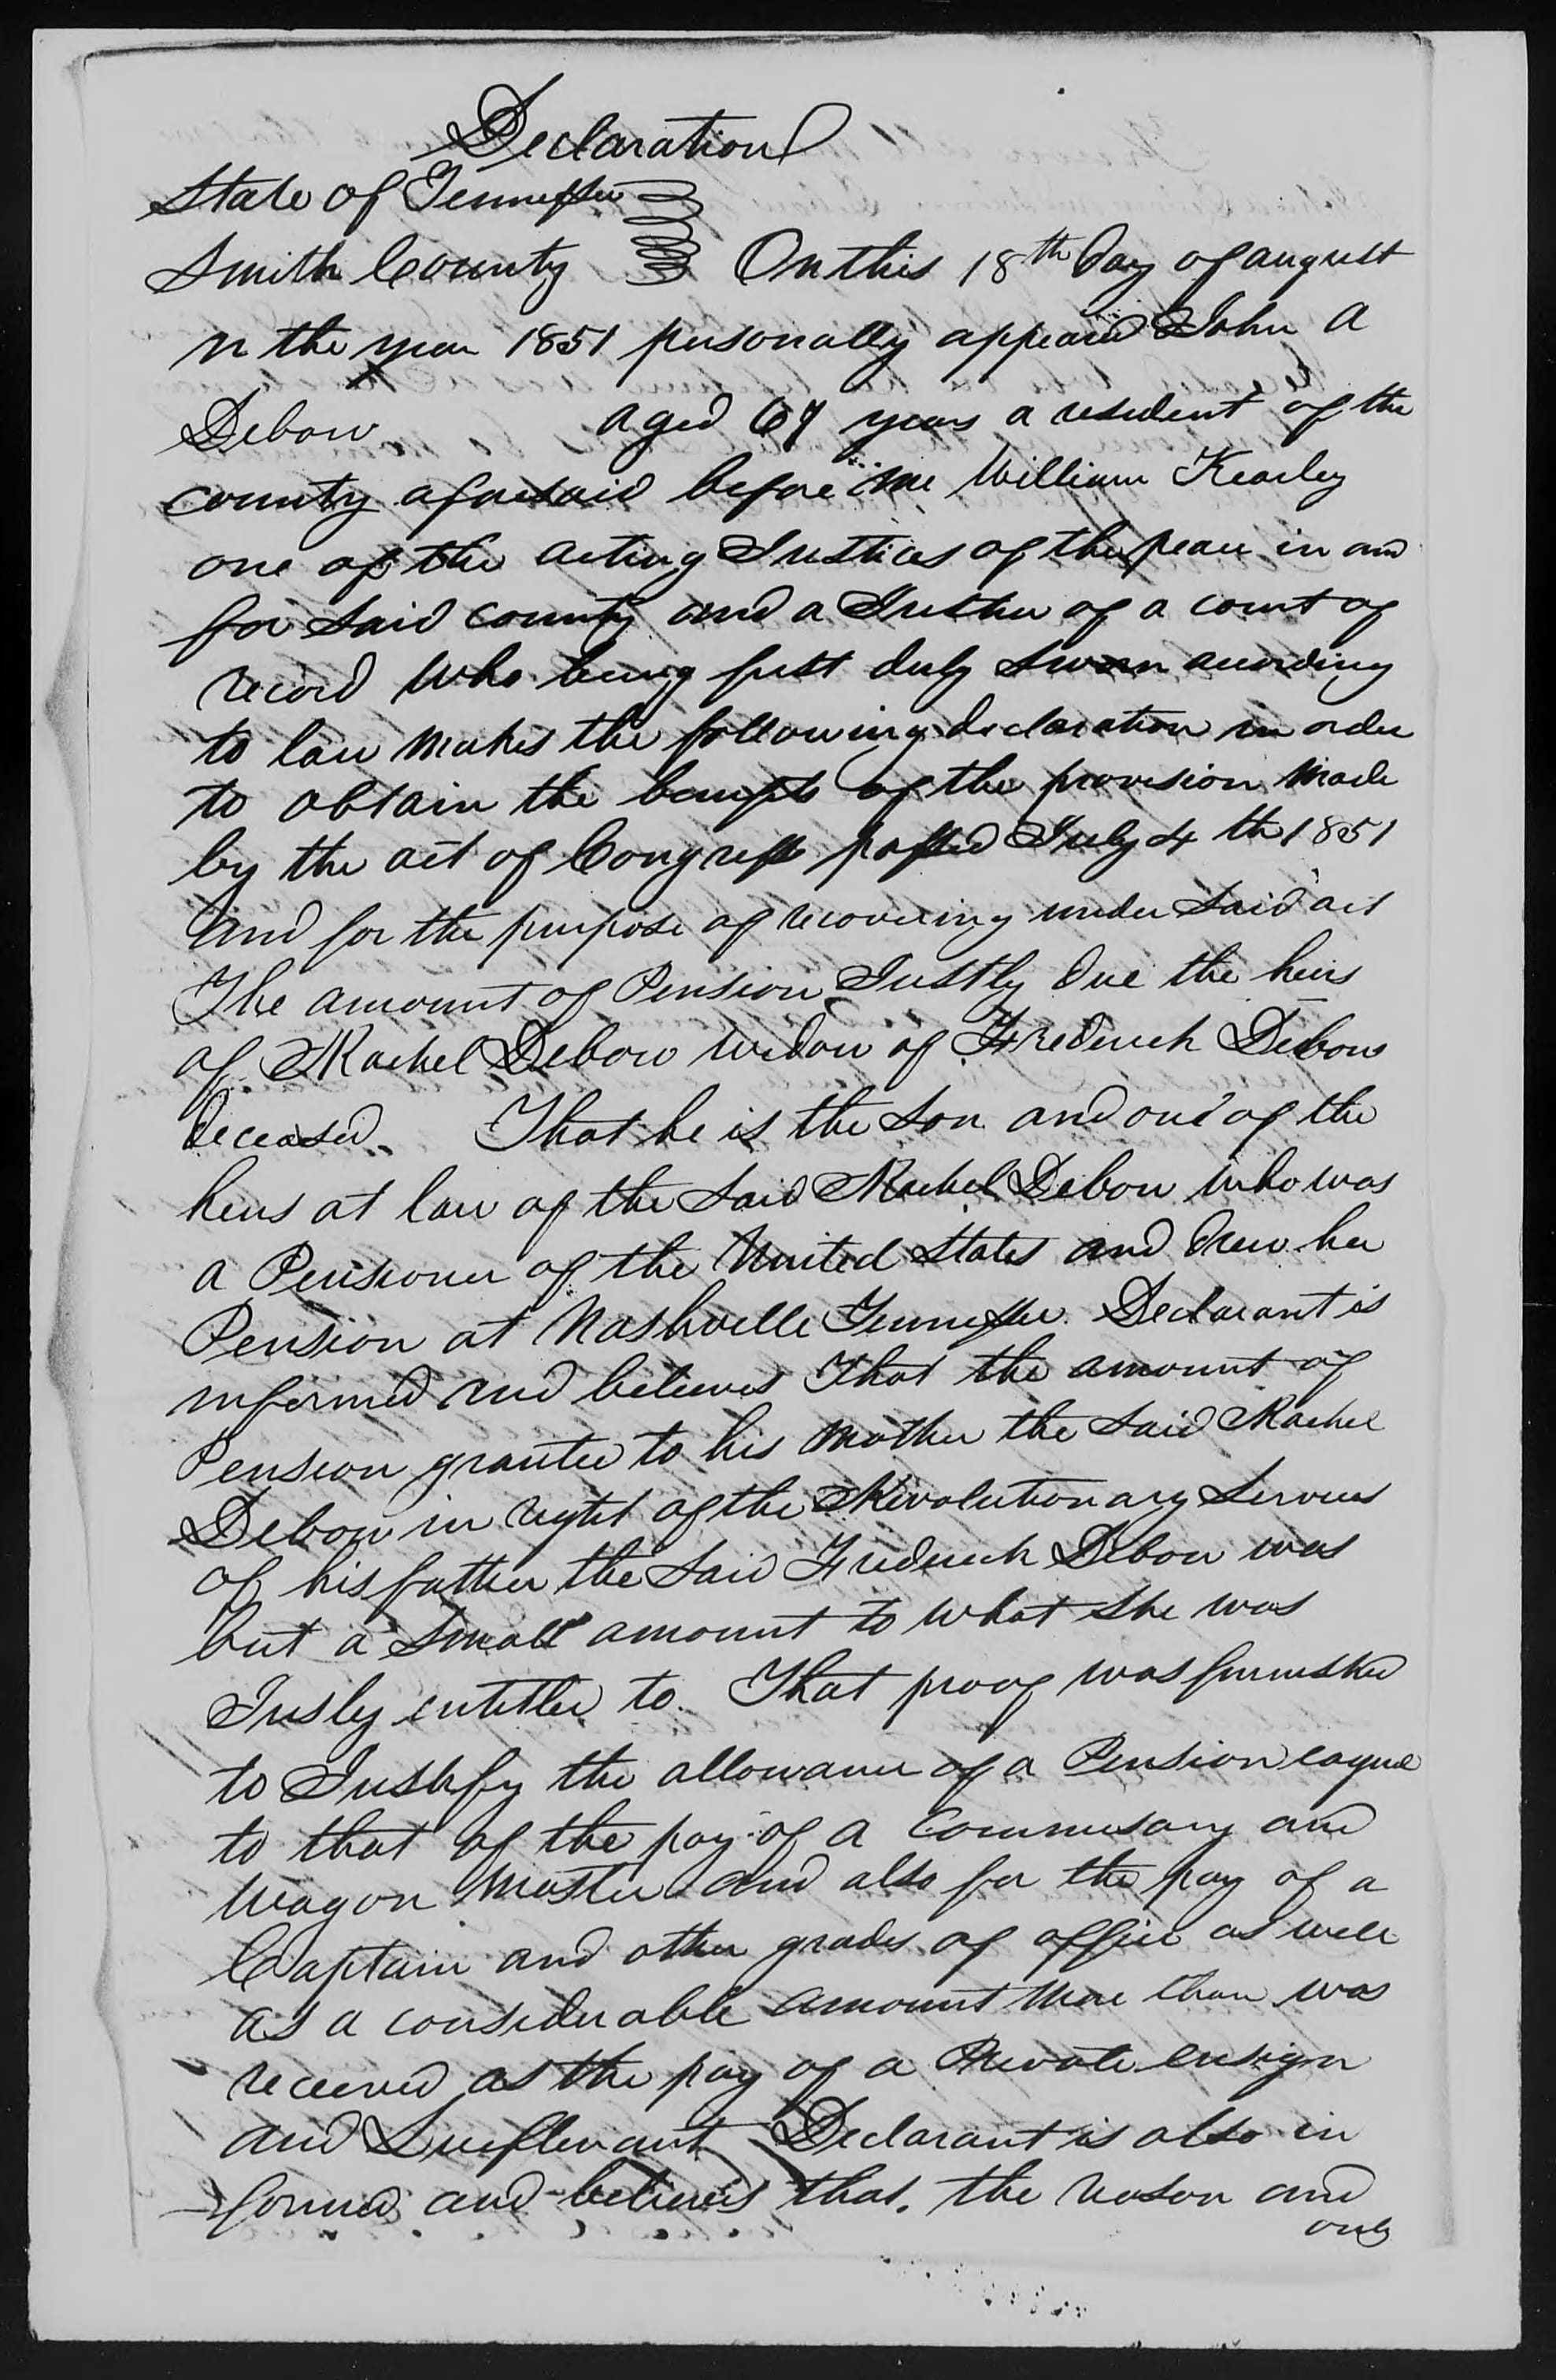 Declaration
State of Tennessee
Smith County On this 18th Day of august
in the year 1851 personally appeared John A
Debow aged 67 years a resident of the
county aforesaid before me William Kearley
one of the acting Justices of the peace in and
for Said County and a Justice of a court of
record Who being first duly Sworn according
to law makes the following declaration in order
to obtain the benefits of the provision made
by the act of Congress passed July 4th 1851
and for the purpose of recovering under Said act
The amount of Pension Justly Due the heirs
of Rachel Debow widow of Frederick Debow
deceased. That he is the Son and one of the
heirs at law of the Said Rachel Debow who was
a Pensioner of the United States and Drew her
Pension at Nashville Tennessee. Declarant is
informed and believes That the amount of
Pension granted to his Mother the Said Rachel
Debow in right of the Revolutionary Services
of his father the Said Frederick Debow was
but a Small amount to what She was
Jusly entitled to. That proof was furnished
to Justify the allowance of a Pension eaqual
to that of the pay of a Commisary and
Wagon Master and also for the pay of a
Captain and other grades of office as well
as a considerable amount more than was
received as the pay of a Private ensign
and Lieutenant Declarant is also in
formed and believes that, the reason and
only